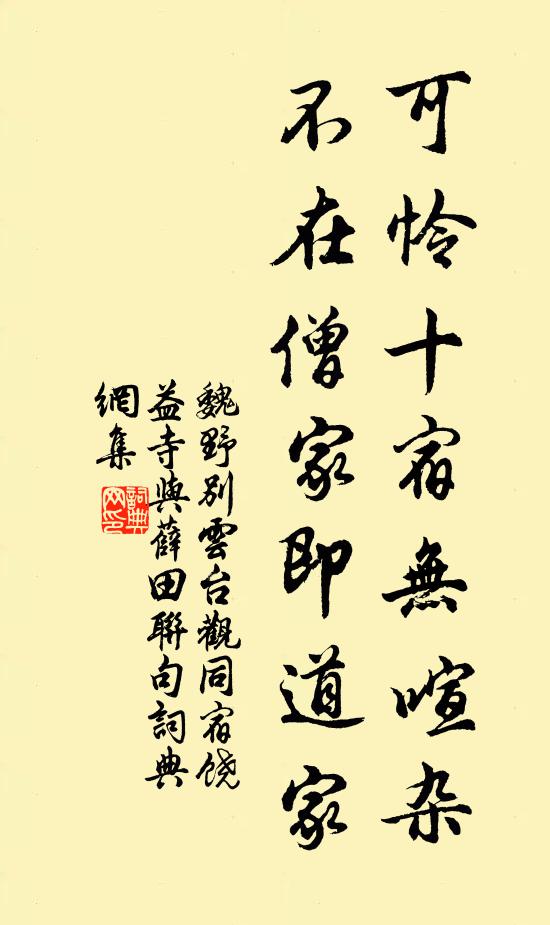 可怜十宿無喧杂
不在僧家即道家
魏野别雲台觀同宿饶
益寺與薛田聯句詞典
網集
詞典
网印